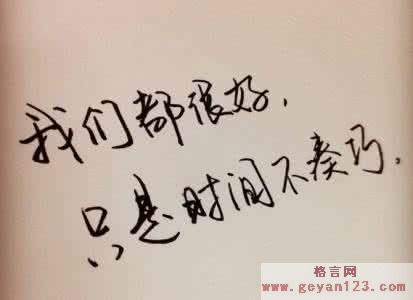 我们都很好.
只是时间不奏巧.
格言网
www.geyan123.com